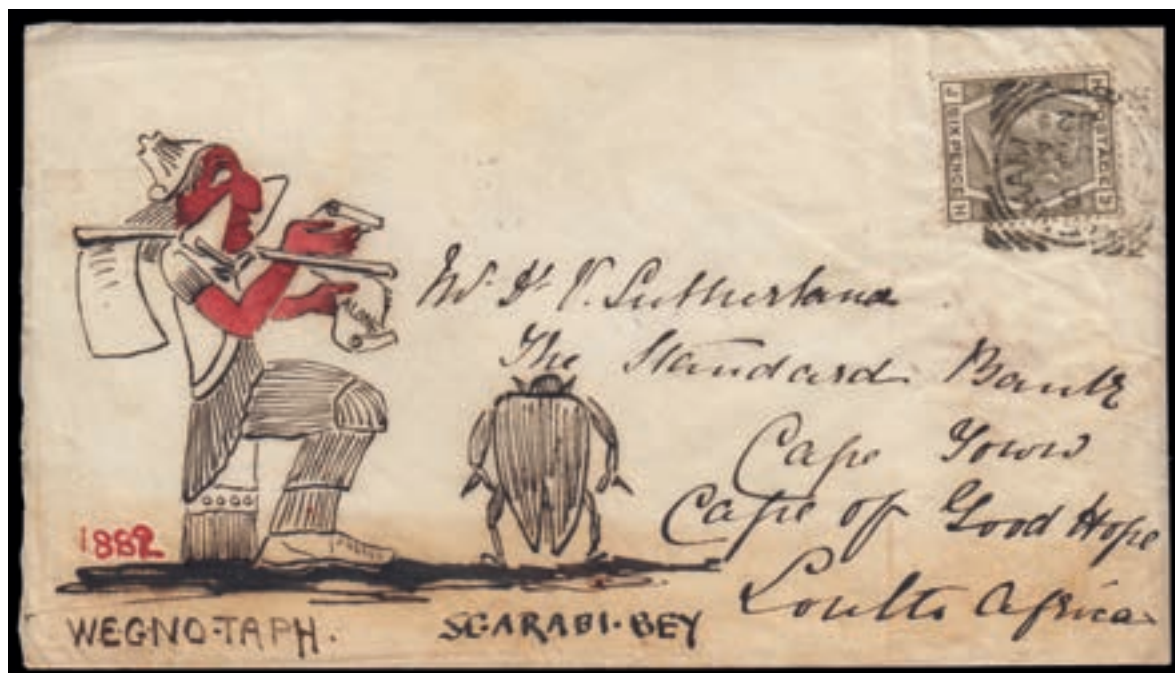 POSTAGE
SIXPENCE
ALONE
Mr. H. V. Sutherland
The Standard Bank
Cape Town
Cape of Good Hope
South Africa
1882
WEGNO-TAPH.
SCARABI-BEY